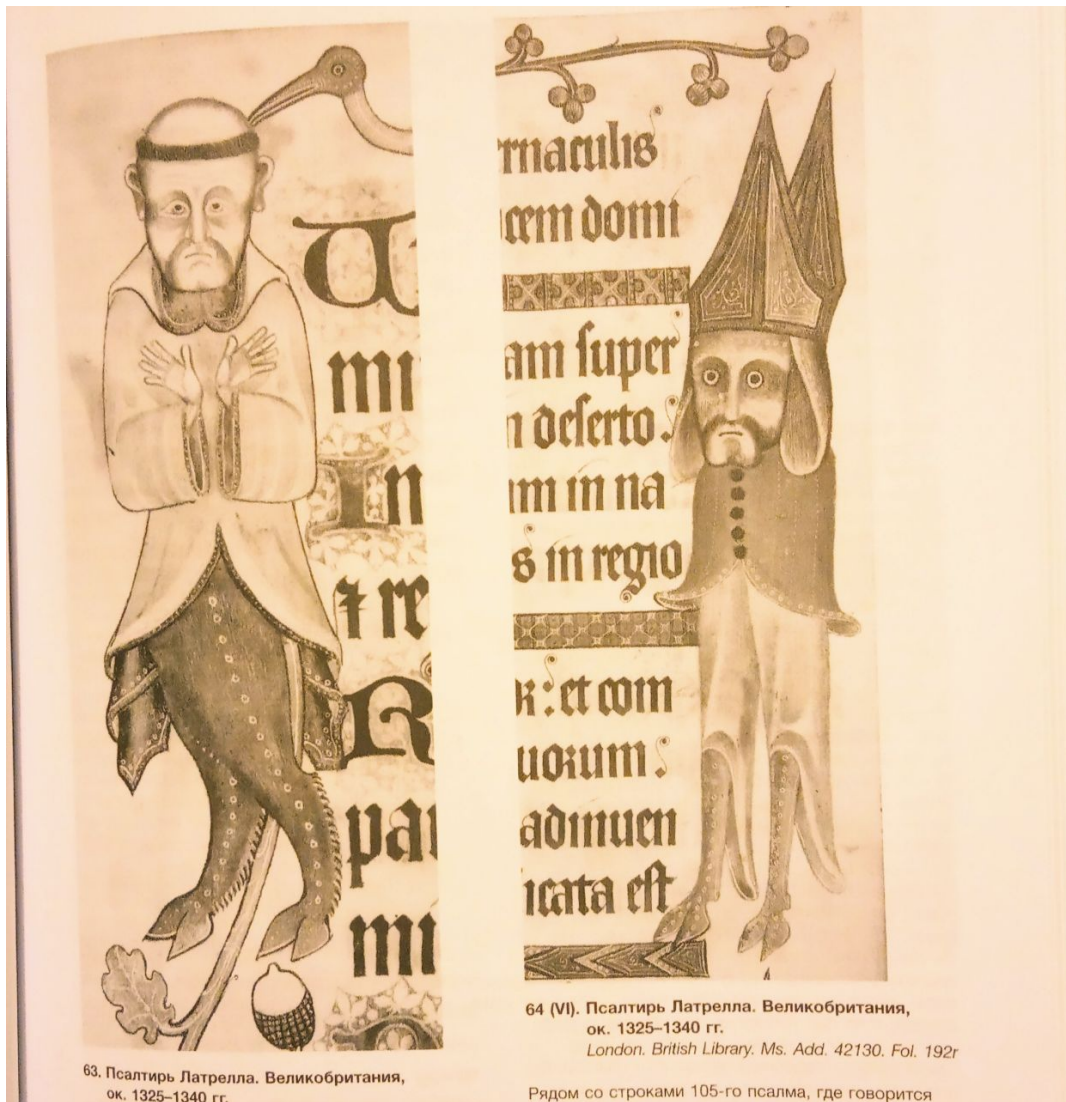 mi
in
⁊ re
R
pa
mi
63. Псалтирь Латрелла. Великобритания,
ок. 1325–1340 гг.
rnaculis
cem domi
am super
n deserto:
um in na
s in regio
r: et com
uorum:
adinuen
icata est
64 (VI). Псалтирь Латрелла. Великобритания,
ок. 1325–1340 гг.
London. British Library. Ms. Add. 42130. Fol. 192r
Рядом со строками 105-го псалма, где говорится